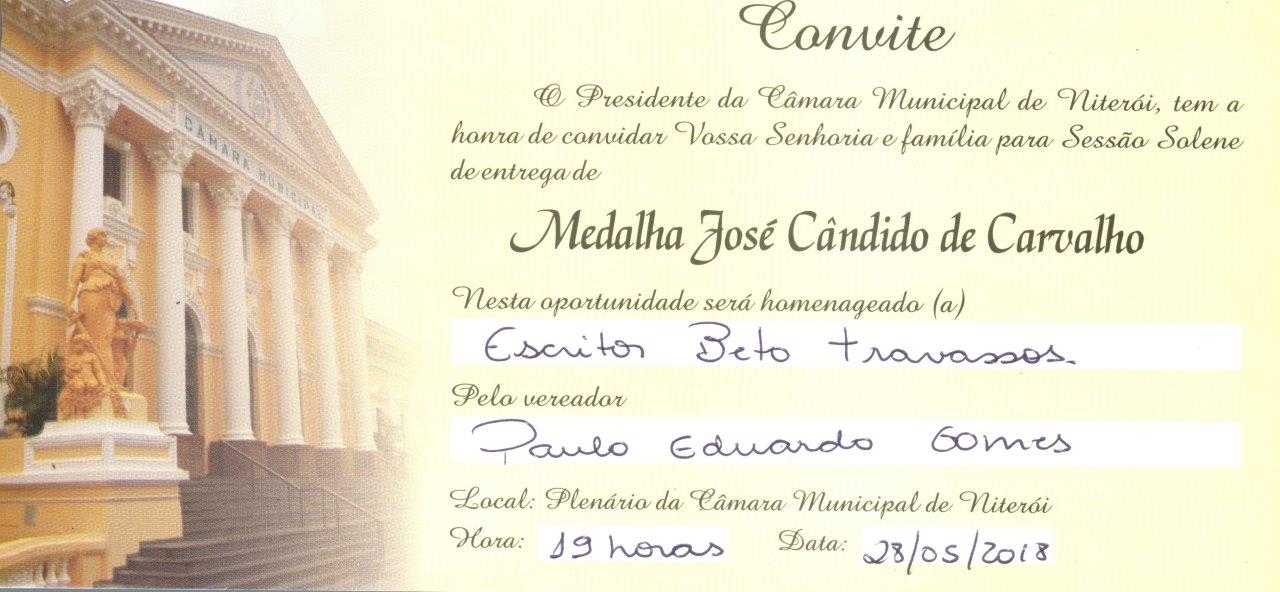 Convite
O Presidente da Câmara Municipal de Niterói, tem a
honra de convidar Vossa Senhoria e família para Sessão Solene
de entrega de
Medalha José Cândido de Carvalho
Nesta oportunidade será homenageado (a)
Escritor Beto Travassos.
Pelo vereador
Paulo Eduardo Gomes
Local: Plenário da Câmara Municipal de Niterói
Hora: 19 horas Data: 28/05/2018
CAMARA MUNICIPAL